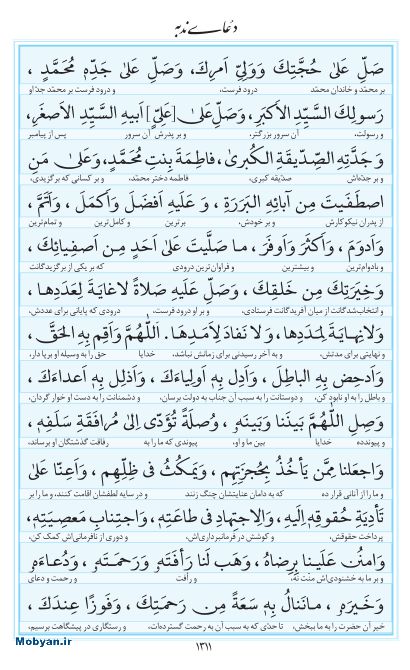 دعای ندبه
صَلِّ عَلىٰ حُجَّتِكَ وَوَلِیِّ اَمرِكَ، وَصَلِّ عَلىٰ جَدِّهٖ مُحَمَّدٍ ،
بر محمّد و خاندان محمّد درود فرست، و درود فرست بر محمّد جدّ او
رَسولِكَ السَّیِّدِ الاَكبَرِ ، وَصَلِّ عَلىٰ [عَلِیٍّ] اَبیهِ السَّیِّدِ الاَصغَرِ،
و رسولت، آن سرور بزرگ‌تر، و بر پدرش آن سرور پس از پیامبر
وَ جَدَّتِهِ الصِّدّیقَةِ الكُبرىٰ، فاطِمَةَ بِنتِ مُحَمَّدٍ، وَعَلىٰ مَنِ
و بر جدّه‌اش صدّیقه کبری، فاطمه دختر محمّد، و بر کسانی که برگزیدی،
اصطَفَیتَ مِن آبائِهِ البَرَرَةِ ، وَ عَلَیهِ اَفضَلَ وَاَكمَلَ ، وَاَتَمَّ ،
از پدران نیکوکارش و بر خودش، برترین و کامل‌ترین و تمام‌ترین
وَاَدوَمَ ، وَاَكثَرَ وَاَوفَرَ ، ما صَلَّیتَ عَلىٰ اَحَدٍ مِن اَصفِیائِكَ ،
و بادوام‌ترین و بیشترین و فراوان‌ترین درودی که بر یکی از برگزیدگانت
وَخِیَرَتِكَ مِن خَلقِكَ ، وَصَلِّ عَلَیهِ صَلاةً لاغایَةَ لِعَدَدِها ،
و انتخاب‌شدگانت از میان آفریدگانت فرستادی، و بر او درود فرست، درودی که پایانی برای عددش،
وَلانِهایَةَ لِمَدَدِها ، وَ لانَفادَ لِاَمَدِها. اَللّٰهُمَّ وَاَقِم بِهِ الحَقَّ ،
و نهایتی برای مدتش، و به آخر رسیدنی برای زمانش نباشد، خدایا حق را به وسیله او برپا دار،
وَاَدحِض بِهِ الباطِلَ ، وَاَدِل بِهٖ اَولِیاءَكَ ، وَاَذلِل بِهٖ اَعداءَكَ ،
و باطل را به او نابود کن، و دوستانت را به سبب آن جناب به دولت برسان، و دشمنانت را به دست او خوار گردان،
وَصِلِ اللّٰهُمَّ بَینَنا وَبَینَهٗ ، وُصلَةً تُؤَدّی اِلىٰ مُرافَقَةِ سَلَفِهٖ ،
و پیوند ده خدایا بین ما و او، پیوندی که ما را به رفاقت گذشتگان او برساند،
وَاجعَلنا مِمَّن یَأخُذُ بِحُجزَتِهِم ، وَیَمكُثُ فی ظِلِّهِم ، وَاَعِنّا عَلىٰ
و ما را از آنانی قرار ده که به دامان عنایتشان چنگ زنند و در سایه لطفشان اقامت کنند، و ما را بر
تَأدِیَةِ حُقوقِهٖ اِلَیهِ ، وَالاِجتِهادِ فی طاعَتِهٖ ، وَاجتِنابِ مَعصِیَتِهٖ،
پرداخت حقوقش، و کوشش در فرمانبرداری‌اش، و دوری از نافرمانی‌اش کمک کن،
وَامنُن عَلَینا بِرِضاهُ ، وَهَب لَنا رَأفَتَهٗ وَرَحمَتَهٗ ، وَدُعاءَهٗ
و بر ما به خشنودی‌اش منت نه، و رأفت و رحمت و دعای
وَخَیرَهٗ ، مانَنالُ بِهٖ سَعَةً مِن رَحمَتِكَ ، وَفَوزًا عِندَكَ ،
خیر آن حضرت را به ما ببخش، تا حدّی که به سبب آن به رحمت گسترده‌ات، و رستگاری در پیشگاهت برسیم،
١٣١١
Mobyan.ir